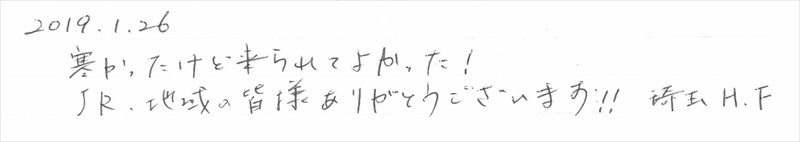 2019.1.26
寒かったけど来られてよかった!
JR、地域の皆様ありがとうございます!! 埼玉 H.F